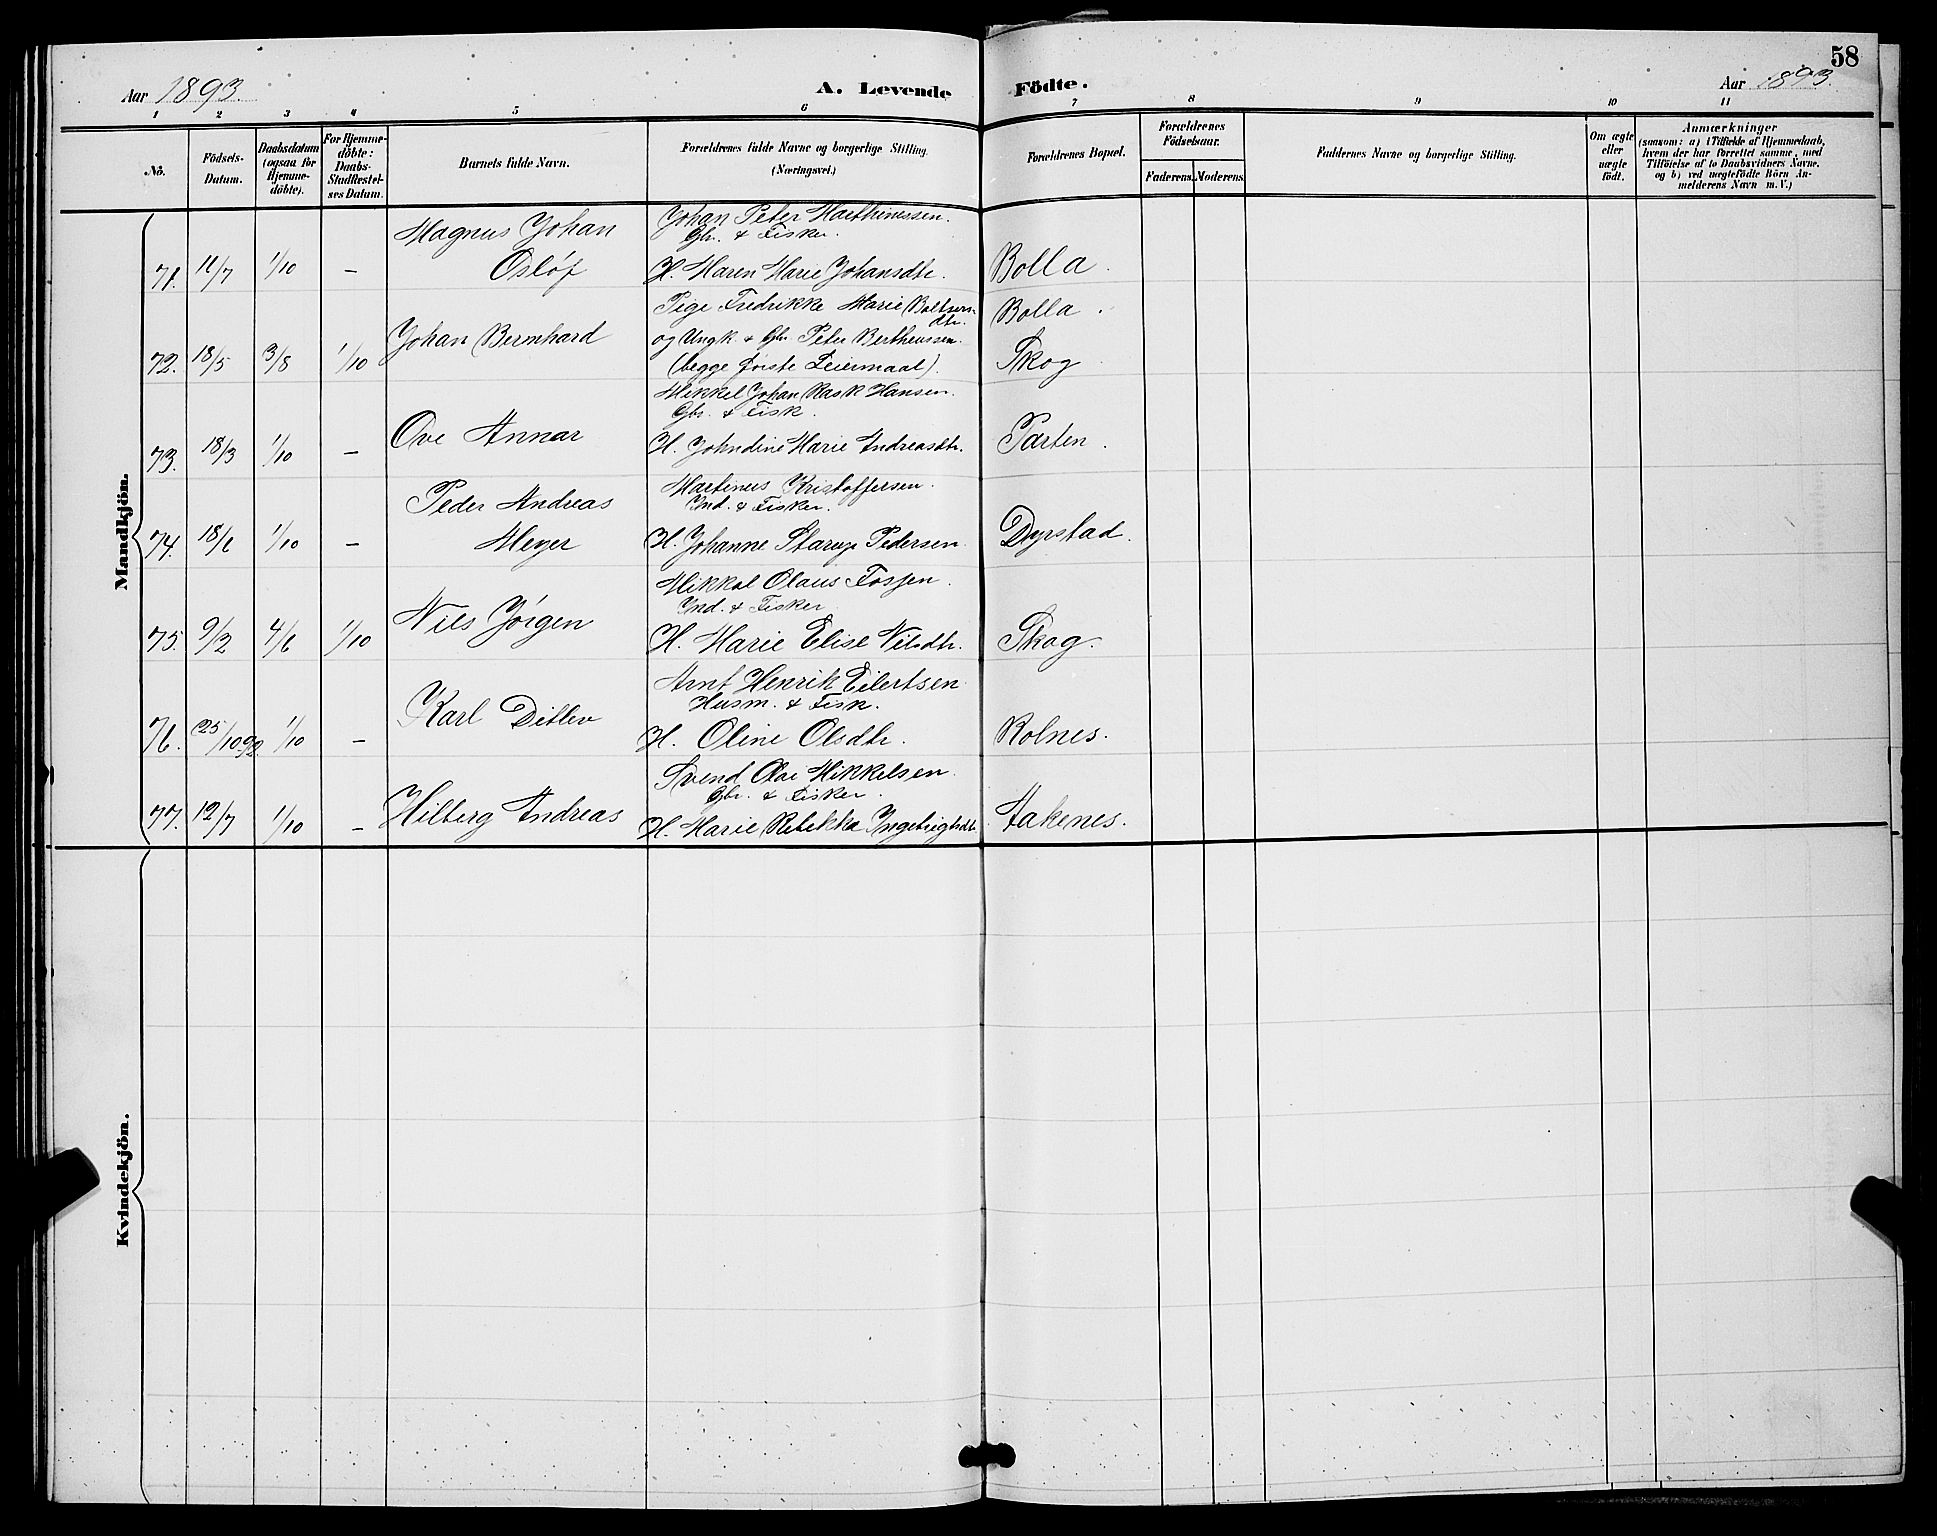 58
Aar 1893. A. Levende Födte. Aar 1893.
1 2 3 4 5 6 7 8 9 10 11
No. Födsels-Datum. Daabsdatum (ogsaa for Hjemme-döbte). For Hjemme-döbte: Daabs-Stadfæstel-ses Datum. Barnets fulde Navn. Forældrenes fulde Navne og borgerlige Stilling. (Næringsvei.) Forældrenes Bopæl. Forældrenes Födselsaar. Faderens. Moderens. Faddernes Navne og borgerlige Stilling. Om ægte eller uægte født. Anmærkninger (saasom: a) i Tilfælde af Hjemmedaab, hvem der har forrettet samme, med Tilföielse af to Daabsvidners Navne. og b) ved uægtefödte Börn An-melderens Navn m. V.)
Mandkjön.
Magnus Johan Johan Peter Marthinussen.
Gbr. & Fisker.
71. 11/7 1/10 – Osløf H. Maren Marie Johansdtr. Bolla.
Pige Fredrikke Marie Boltsersdtr. Bolla.
Johan Bernhard og Ungk. & Gbr. Peter Bertheussen.
72. 18/5 3/8 1/10 (begge første Leiermaal). Skog
Mikkel Johan Rask Hansen.
Gbr. & Fisk.
73. 18/3 1/10 – Ove Annar H. Johndine Marie Andreasdtr. Parten.
Peder Andreas Martinus Kristoffersen.
Ind. & Fisker.
74. 18/6 1/10 – Meyer H. Johanne Starup Pedersen. Dyrstad.
Mikkal Olaus Fossen.
Ind. & Fisker
75. 9/2 4/6 1/10 Nils Jörgen H. Marie Elise Nilsdtr. Skog.
Arnt Henrik Eilertsen
Husm. & Fisk.
76. 25/10 92 1/10 – Karl Ditlev H. Oline Olsdtr. Rolnes.
Svend Olai Mikkelsen.
Gbr. & Fisker.
77. 12/7 1/10 – Hilberg Andreas H. Marie Rebekka Ingebrigtsdtr. Aakenes.
Kvindekjön.